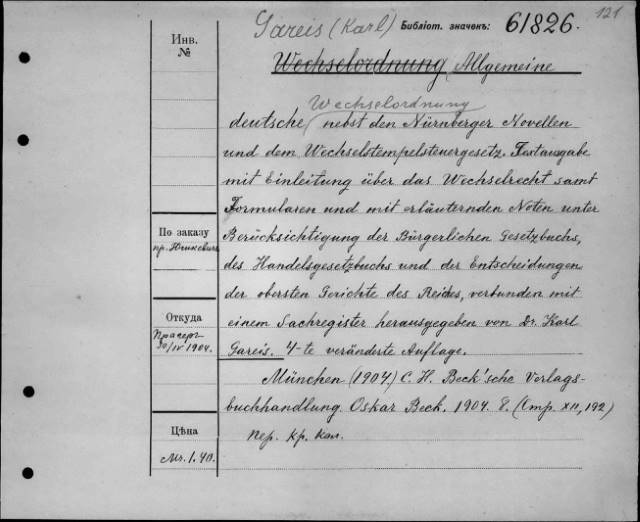 121
Gareis (Karl) Библіот. значекъ: 61826.
Инв. №
Wechselordnung Allgemeine
Wechselordnung
deutsche nebst den Nürnberger Novellen
und dem Wechselstempelsteuergesetz. Textausgabe
mit Einleitung über das Wechselrecht samt
Formularen und mit erläuternden Noten unter
Berücksichtigung der Bürgerlichen Gesetzbuchs,
des Handelsgesetzbuchs und der Entscheidungen
der obersten Gerichte des Reiches, verbunden mit
einem Sachregister herausgegeben von Dr. Karl
Gareis. 4-te veränderte Auflage.
München (1904) C. H. Beck'sche Verlags-
buchhandlung. Oskar Beck. 1904. 8. (Imp. XII, 192)
Пер. кр. кол.
По заказу
пр.
Откуда
30/IV 1904.
Цѣна
Mr. 1.40.